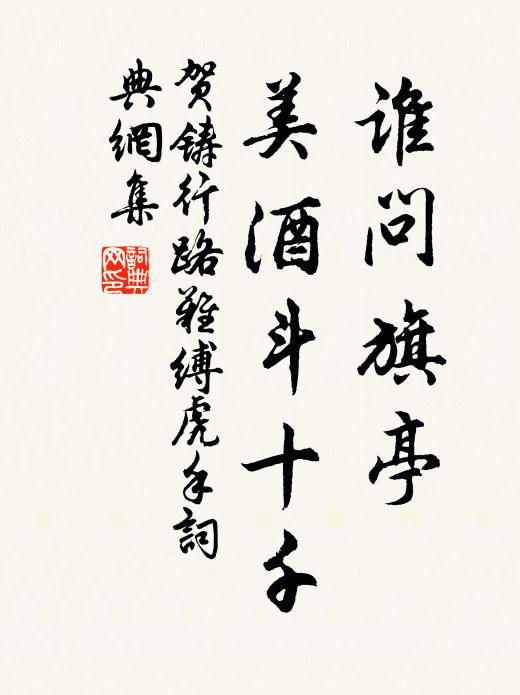 谁问旗亭
美酒斗十千
贺铸行路难缚虎手詞
典網集
詞典
网印